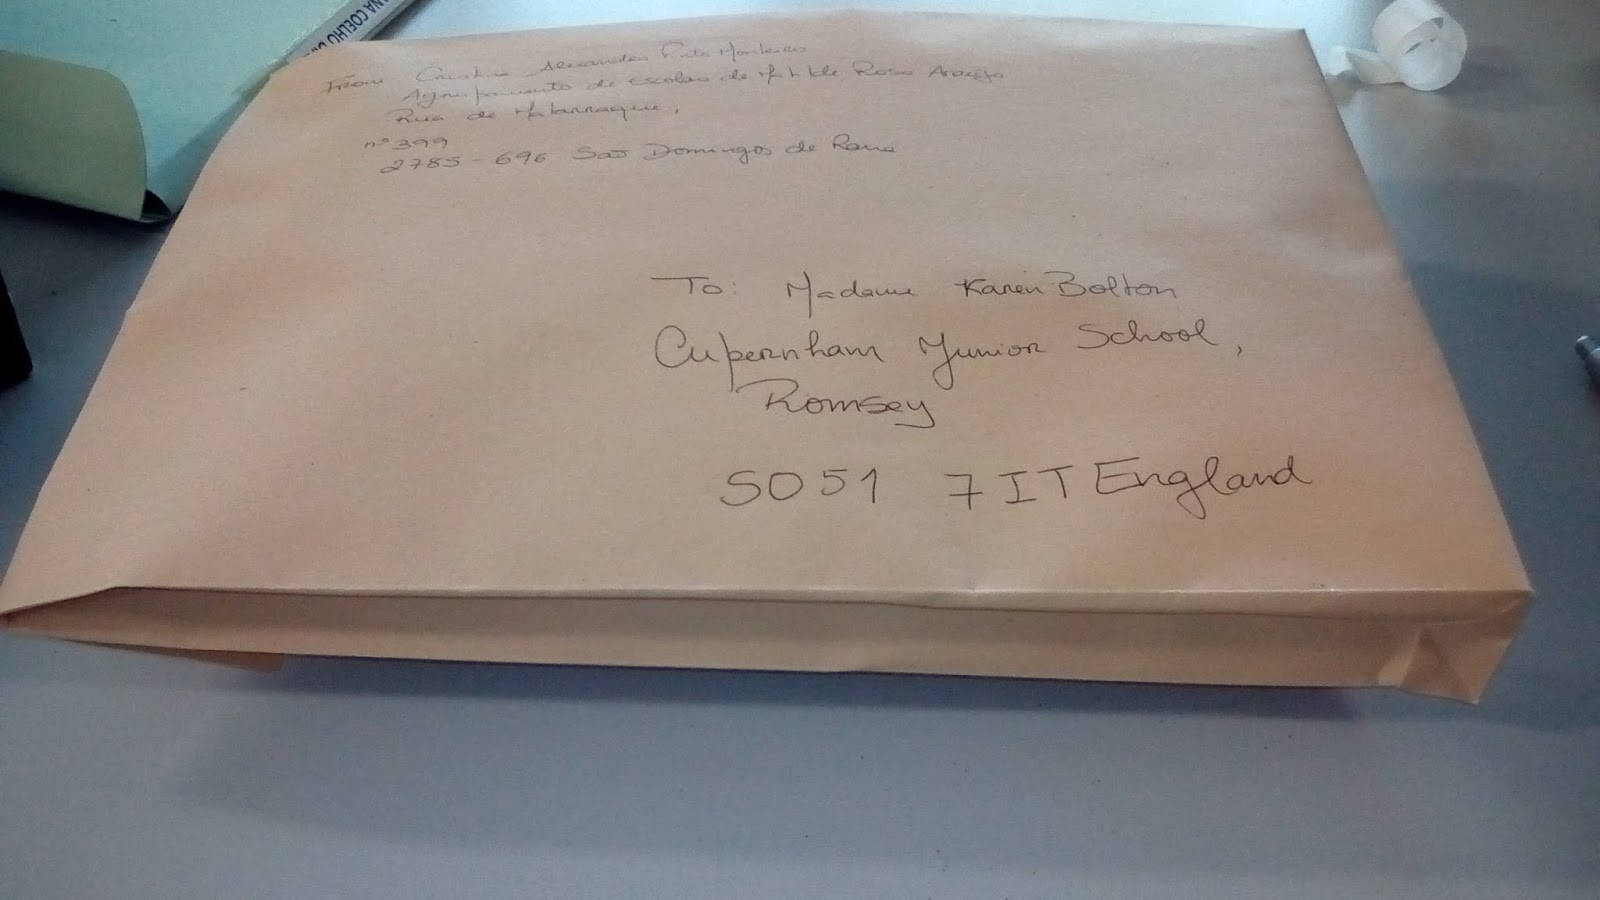 ANA COELHO
From: Cristina Alexandra Pinto Monteiro
Agrupamento de escolas de Matilde Rosa Araújo
Rua de Matarraque,
nº 399
2785 - 696 São Domingos de Rana
To: Madame Karen Bolton
Cupernham Junior School,
Romsey
SO51 7IT England